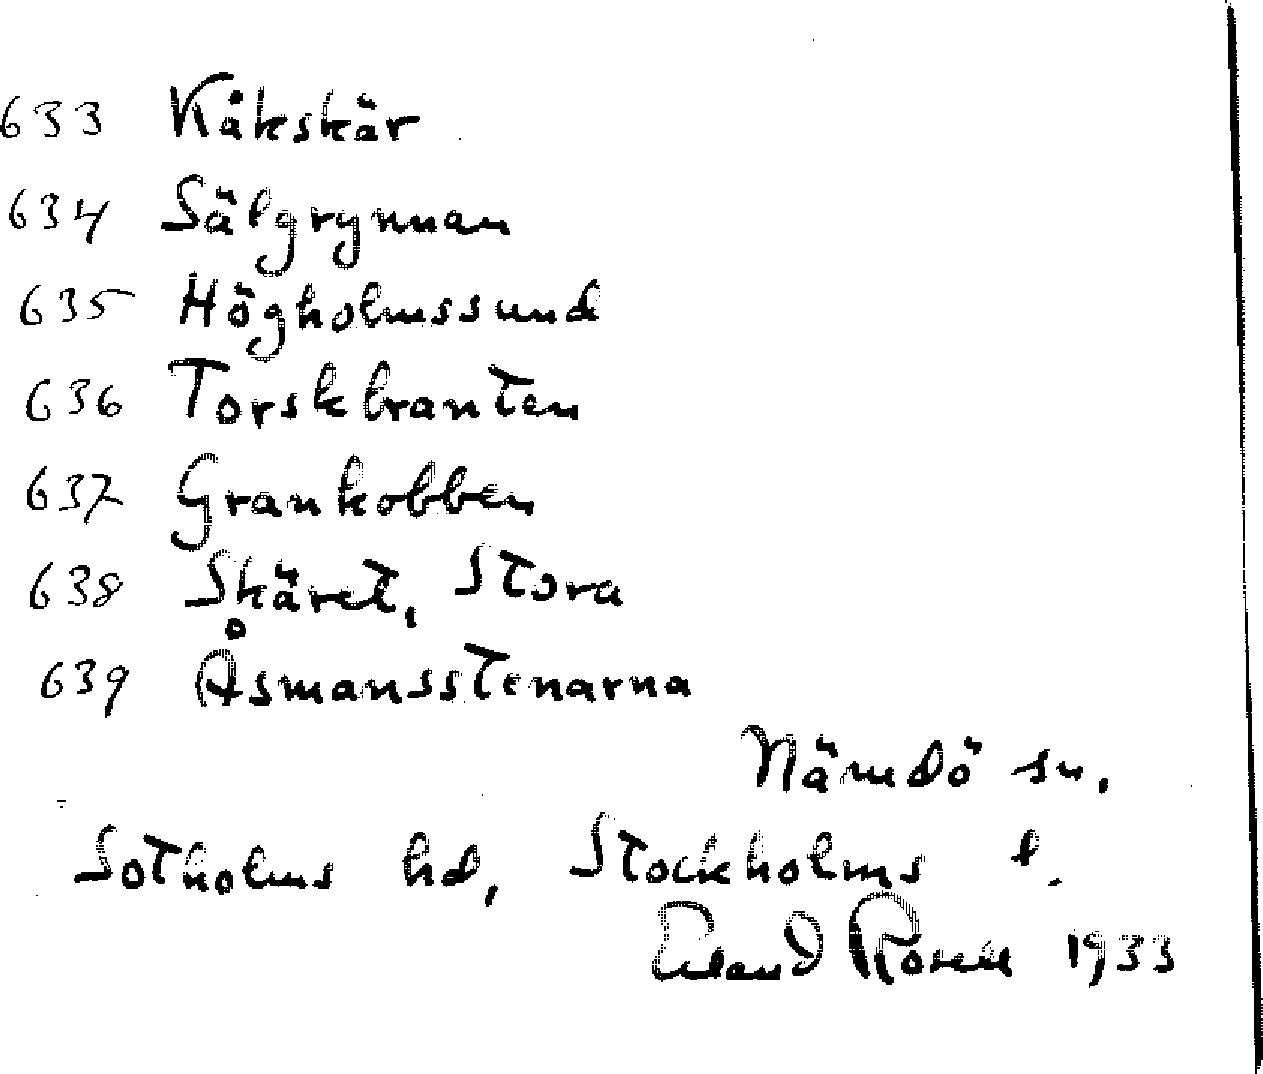 633 Kåkskär
634 Sälgrynnan
635 Högholmssund
636 Torskbranten
637 Grankobben
638 Skäret, Stora
639 Åsmansstenarna
Nämdö sn.
Sotholms hd, Stockholms l.
Erland Rosell 1933